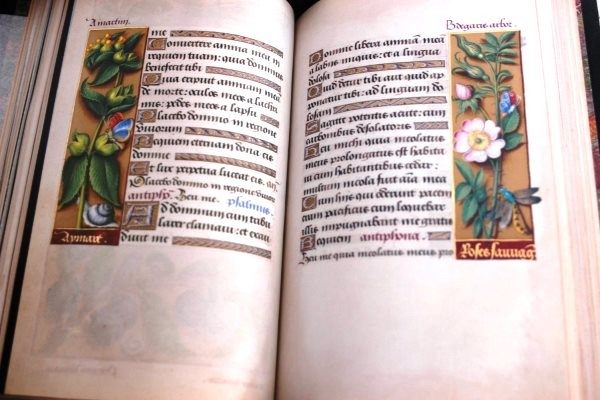 A martim.
me
Convertere anima mea in
requiem tuam: quia dominus
benefecit tibi
Quia eripuit animam meā
de morte: oculos meos a lachri
mis: pedes meos a lapsu
Placebo domino in regione
vivorum
Requiem eternam dona eis
domine
Et lux perpetua luceat eis. añ.
Placebo domino in regione vivorum
antiphō. Heu me. psalmus.
Ad dominum cum tribu
larer clamavi: et exau
divit me
Aymare
Bedegaris arbor.
Domine libera animā meā
a labiis iniquis: et a lingua
dolosa
Quid detur tibi aut quid ap
ponatur tibi: ad linguam do
losam
Sagitte potentis acute: cum
carbonibus desolatoriis
Heu michi quia incolatus
meus prolongatus est habita
vi cum habitantibus cedar:
multum incola fuit aīa mea
Cum hiis qui oderunt pacem
eram pacificus cum loquebar
illis impugnabant me gratis
Requiem antiphona.
Heu me quia incolatus meus pro
Roses sauvag